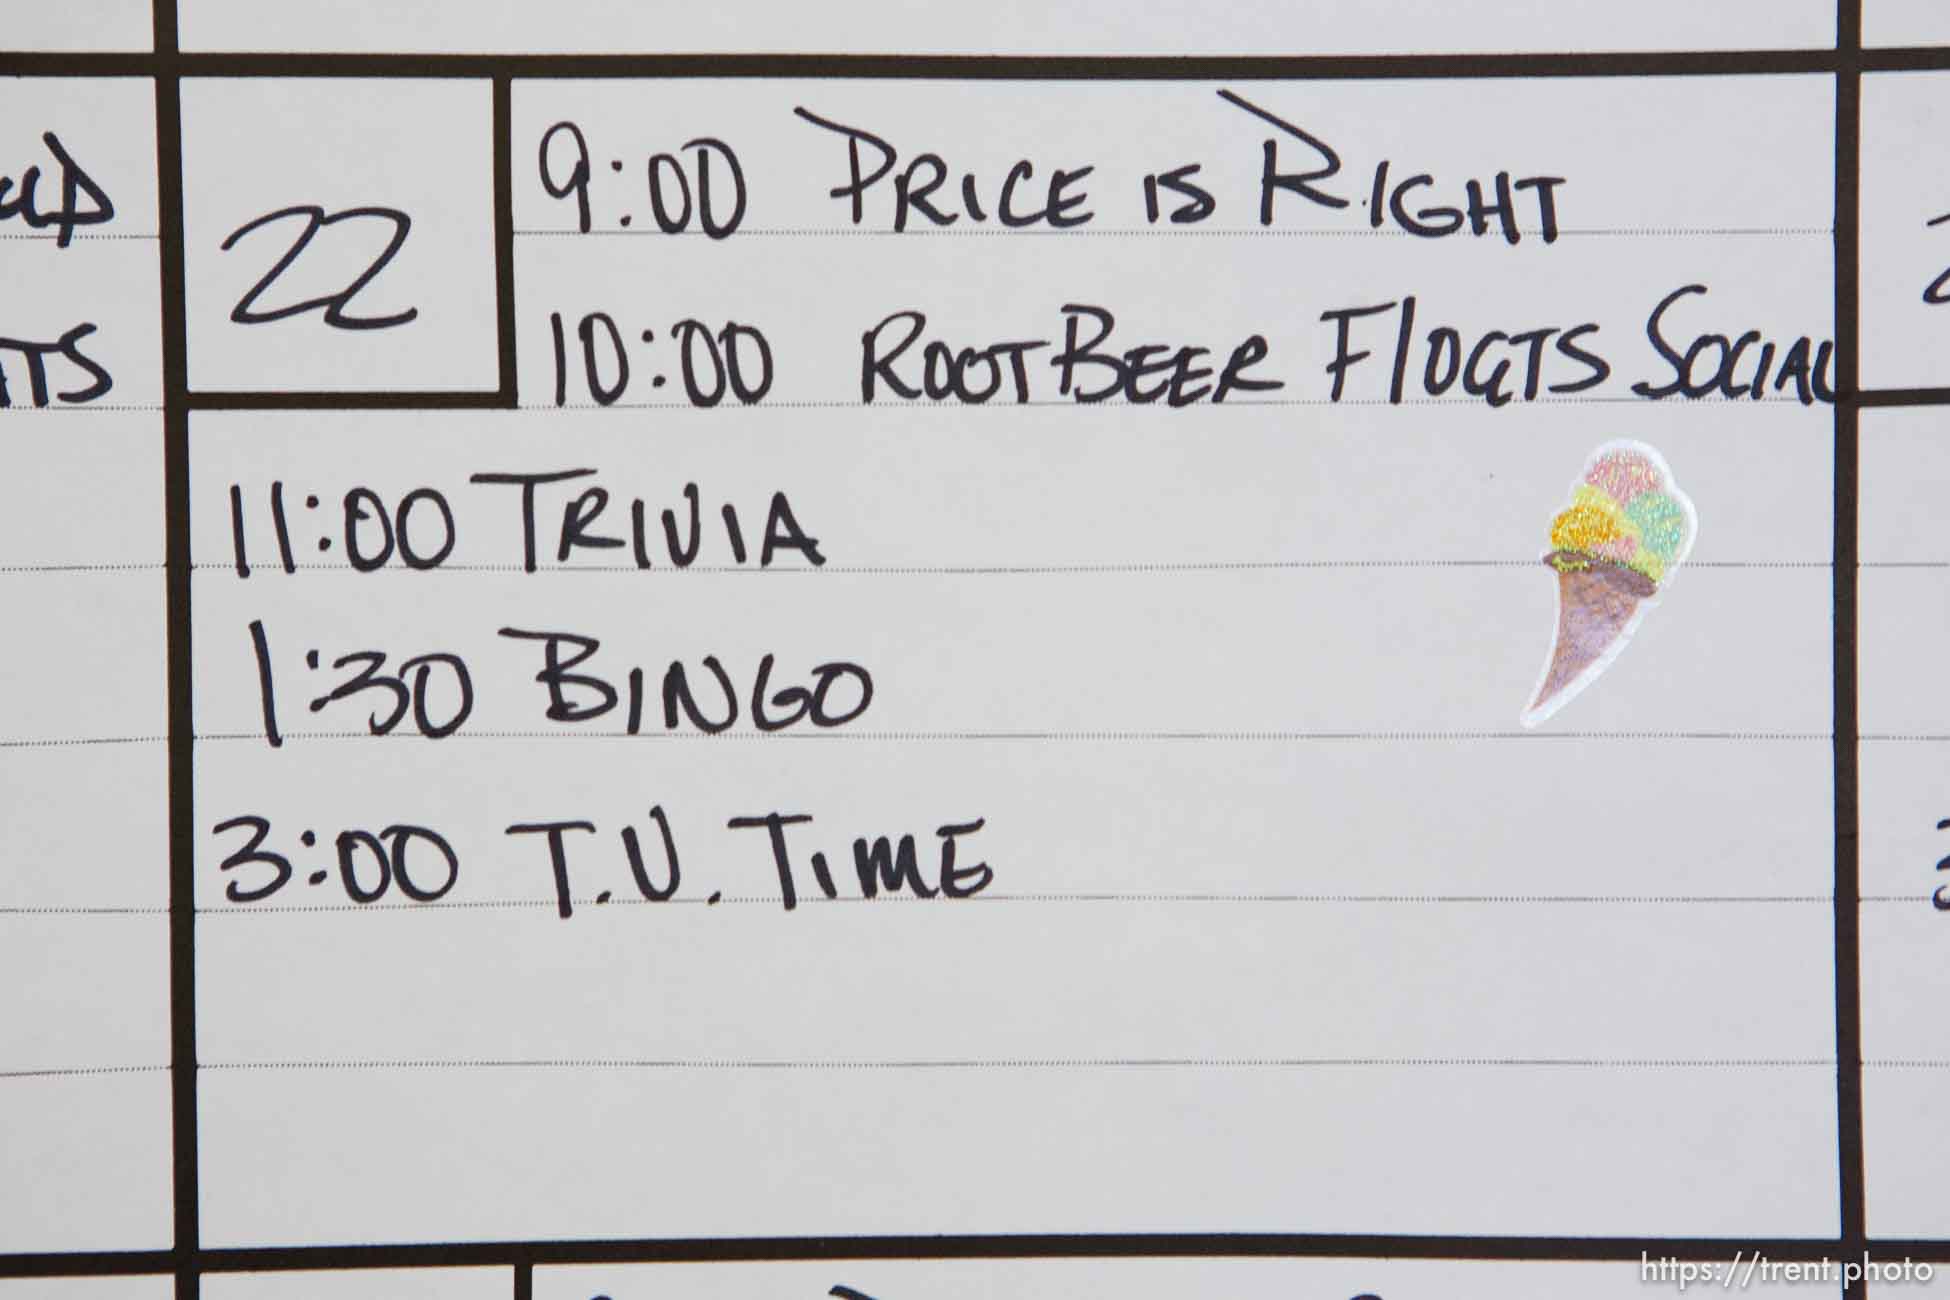 22
9:00 PRICE IS RIGHT
10:00 ROOTBEER FlOATS SOCIAL
11:00 TRIVIA
1:30 BINGO
3:00 T.V. TIME
https://trent.photo